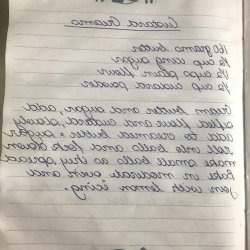 Custard Creams
160 grams butter
½ cup icing sugar
1½ cups plain flour
½ cup custard powder
Cream butter and sugar, add
sifted flour and custard, slowly
add to creamed butter + sugar.
Roll into balls and fork down
make small balls as they spread
Bake in moderate oven and
join with lemon icing.